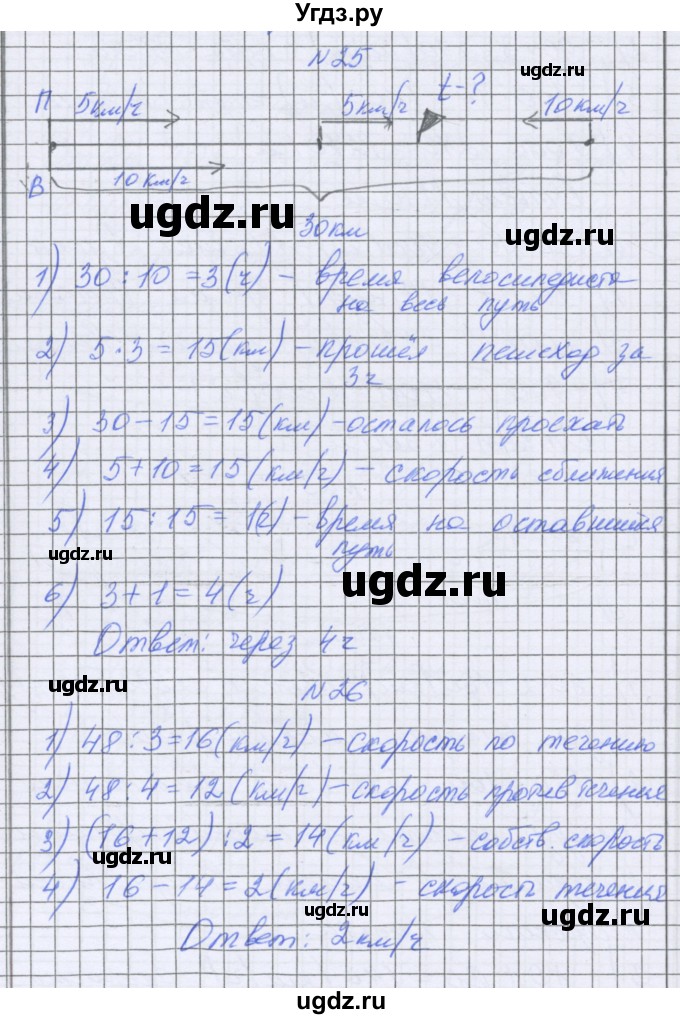 Угдз.ру
№25
ugdz.ru
П 5км/ч 5км/ч t-? 10км/ч
В 10км/ч
ugdz.ru
30км
ugdz.ru
1) 30 : 10 = 3(ч) - время велосипедиста
на весь путь
2) 5·3 = 15(км) - прошёл пешеход за
3ч
3) 30-15=15(км)-осталось проехать
4) 5+10=15(км/ч) - скорость сближения
5) 15:15 = 1(ч) - время на оставшийся
путь
ugdz.ru
ugdz.ru
6) 3+1=4(ч)
Ответ: через 4ч
ugdz.ru
№26
1) 48:3=16(км/ч) - скорость по течению
2) 48:4=12(км/ч) - скорость против течения
3) (16+12):2=14(км/ч) - собств. скорость
4) 16-14=2(км/ч) - скорость течения
ugdz.ru
ugdz.ru
Ответ: 2км/ч
ugdz.ru